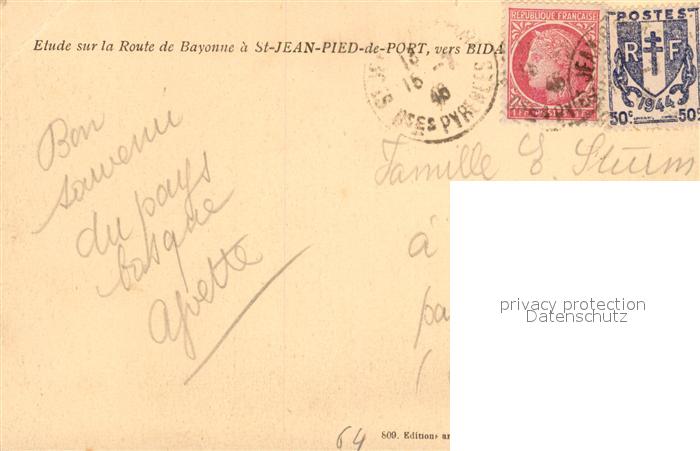 Etude sur la Route de Bayonne à St-JEAN-PIED-de-PORT, vers BIDA
REPUBLIQUE FRANÇAISE
POSTES
R F
1944
50c 50c
Bses PYRENEES
Bon
souvenir
du pays
basque
Famille E. Sturm
à
pa
(
privacy protection
Datenschutz
64
809. Editions ar